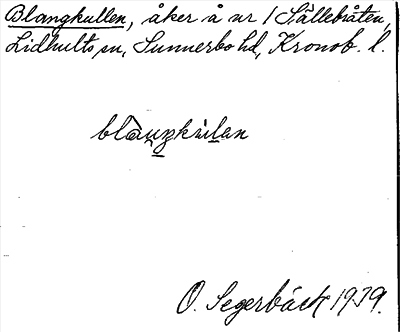 Blangkullen, åker å nr 1 Sällebråten,
Lidhults sn, Sunnerbo hd, Kronob. l.
O. Segerbäck 1939.